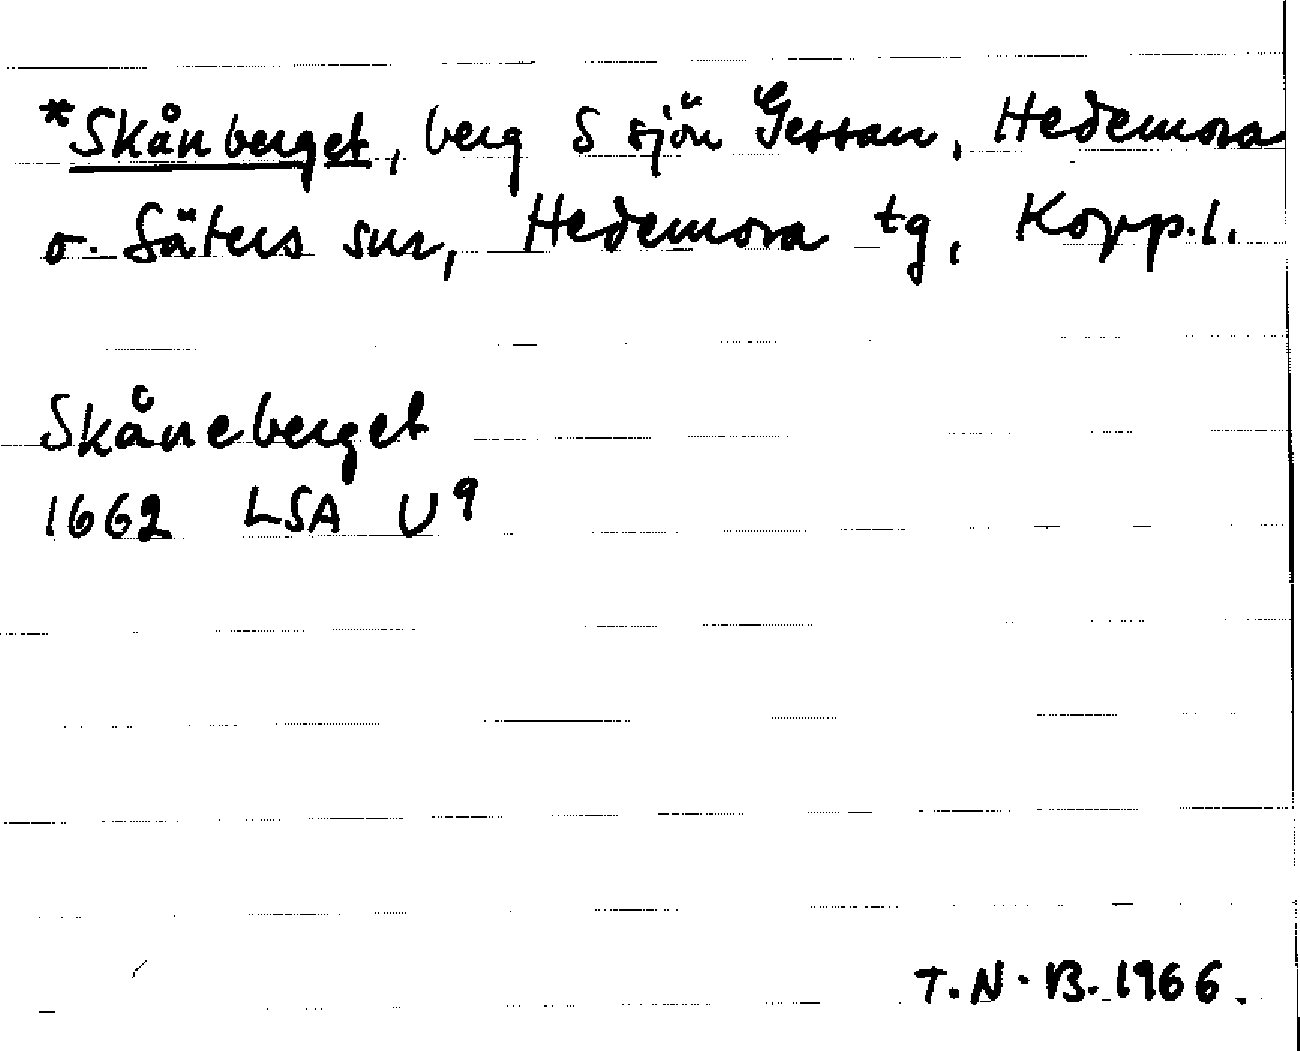 *Skånberget, berg S sjön Gessan, Hedemora
o. Säters snr, Hedemora tg, Kopp.l.
Skåneberget
1662 LSA U9
T.N.B. 1966.